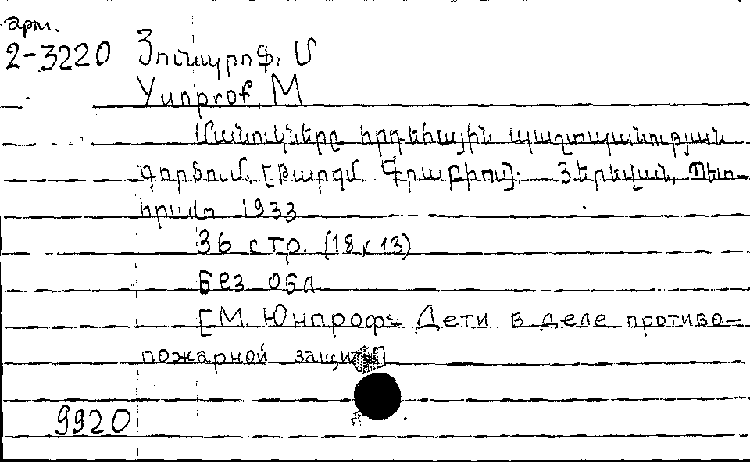 арт.
2-3220 Յունպրոֆ. Մ
Yunprof M
Մանուկները հրդեհային պաշտպանության
գործում. [Թարգմ. Գրաբխու]. Յերեվան, Պետ
հրատ 1933
36 стр. (18 x 13)
Без обл
[М. Юнпроф: Дети в деле противо-
пожарной защиты]
9920